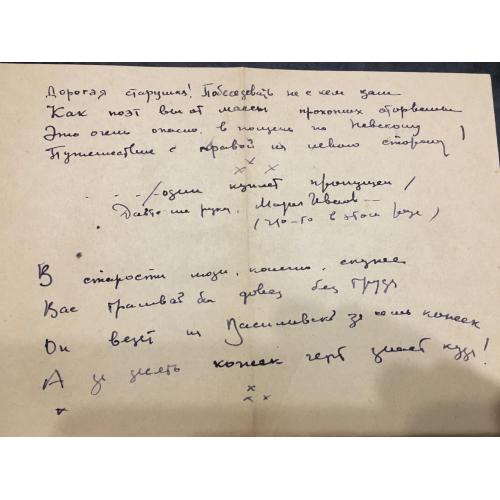 Дорогая старушка! Побеседовать не с кем вам
Как поэт вы от массы прохожих оторваны
Это очень опасно в полдень по Невскому
Путешествие с правой на левую сторону
/один куплет пропущен/
руку, Мария Иванов--
(что-то в этом роде)
В старости люди, конечно, скупее
Вас трамвай бы довез без труда
Он везет на Васильевский за семь копеек
А за десять копеек черт знает куда!